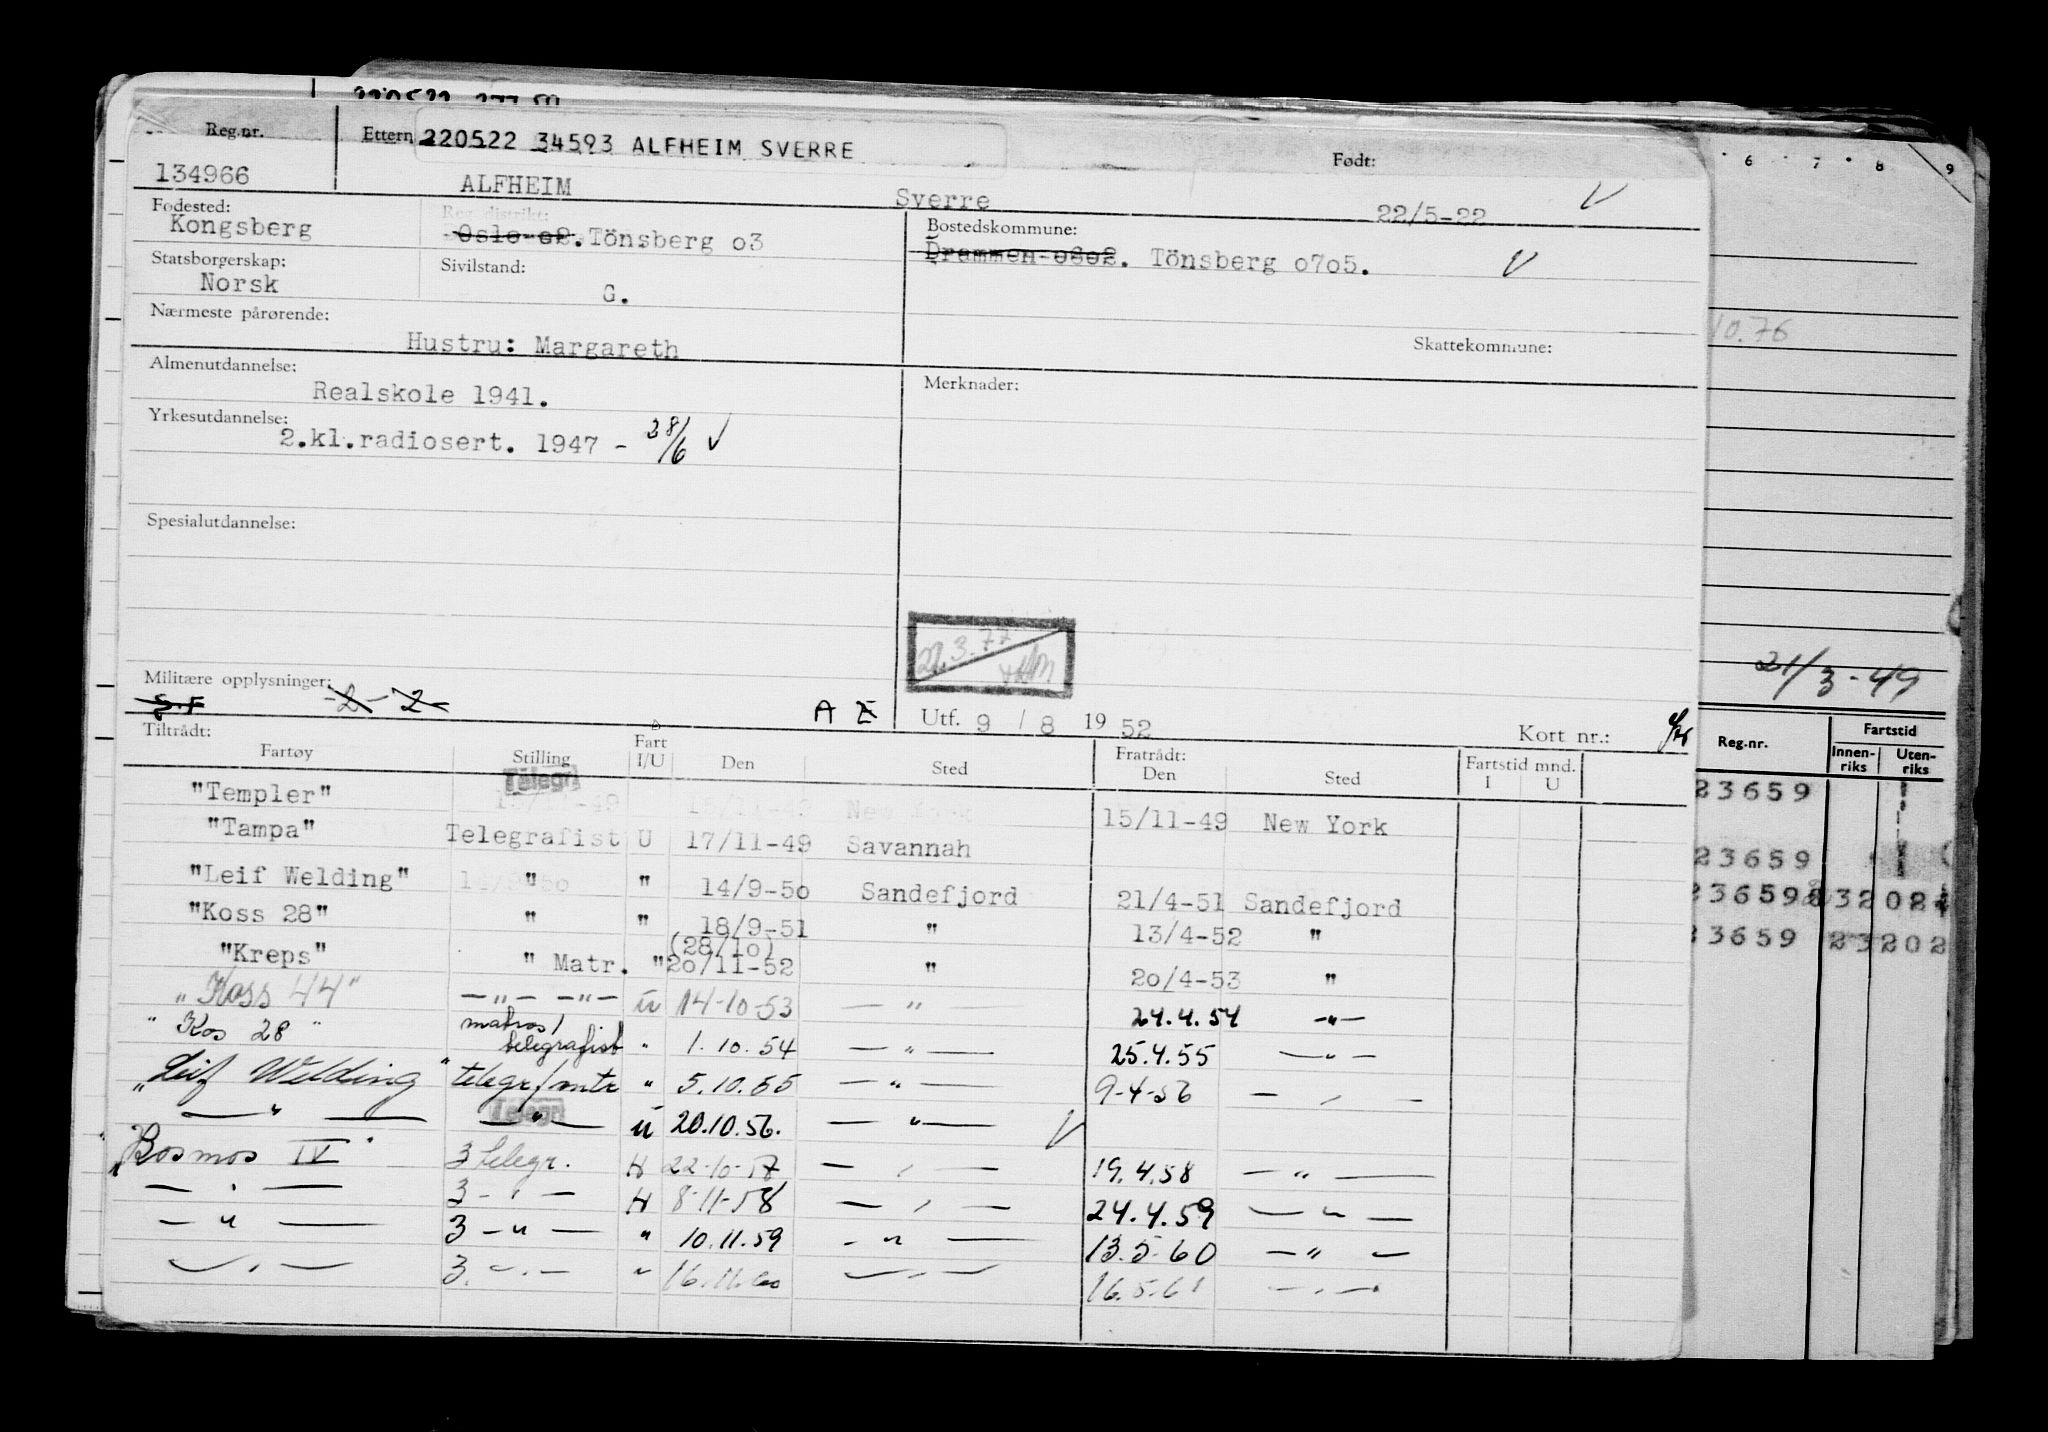 Reg.nr. Ettern 220522 34593 ALFHEIM SVERRE Født:
134966 ALFHEIM Sverre 22/5-22
Fødested: Reg distrikt: Bostedskommune:
Kongsberg Oslo o2. Tönsberg o3 Drammen o6o2. Tönsberg o7o5.
Statsborgerskap: Sivilstand:
Norsk G.
Nærmeste pårørende:
Hustru: Margareth Skattekommune:
Almenutdannelse: Merknader:
Realskole 1941.
Yrkesutdannelse:
2.kl.radiosert. 1947 - 28/6
Spesialutdannelse:
22.3.77
Militære opplysninger:
S.F -2- -2- A Z Utf. 9 / 8 19 52 Kort nr.:
Tiltrådt: Fratrådt:
Fartøy Stilling Fart I/U Den Sted Den Sted Fartstid mnd. I U
"Templer" Telegr. 15/11-49 New York
"Tampa" Telegrafist U 17/11-49 Savannah
"Leif Welding" " " 14/9-5o Sandefjord 21/4-51 Sandefjord
"Koss 28" " " 18/9-51 " 13/4-52 "
(28/1o)
"Kreps" " Matr. " 2o/11-52 " 2o/4-53 "
"Koss 44" -"- -"- u 14-10-53 - " 24.4.54 -"-
" Kos 28 " matros/ telegrafist " 1.10.54 -"- 25.4.55 -"-
"Leif Welding" telegr/mtr " 5.10.55 -"- 9-4-56 - " -
-"- -"- Telegr. u 20.10.56. -"-
"Kosmos IV" 3 telegr. H 22-10-57 - " - 19.4.58 -"-
- " - 3 - " - H 8-11-58 - " - 24.4.59 -"-
-"- 3 -"- " 10.11.59 -"- 13.5.60 -"-
-"- 3. -"- " 16.11.60 -"- 16.5.61 -"-
6 7 8 9
10.76
21/3-49
Reg.nr. Fartstid
Innen-riks Uten-riks
23659
23659
23659 232024
23659 23202